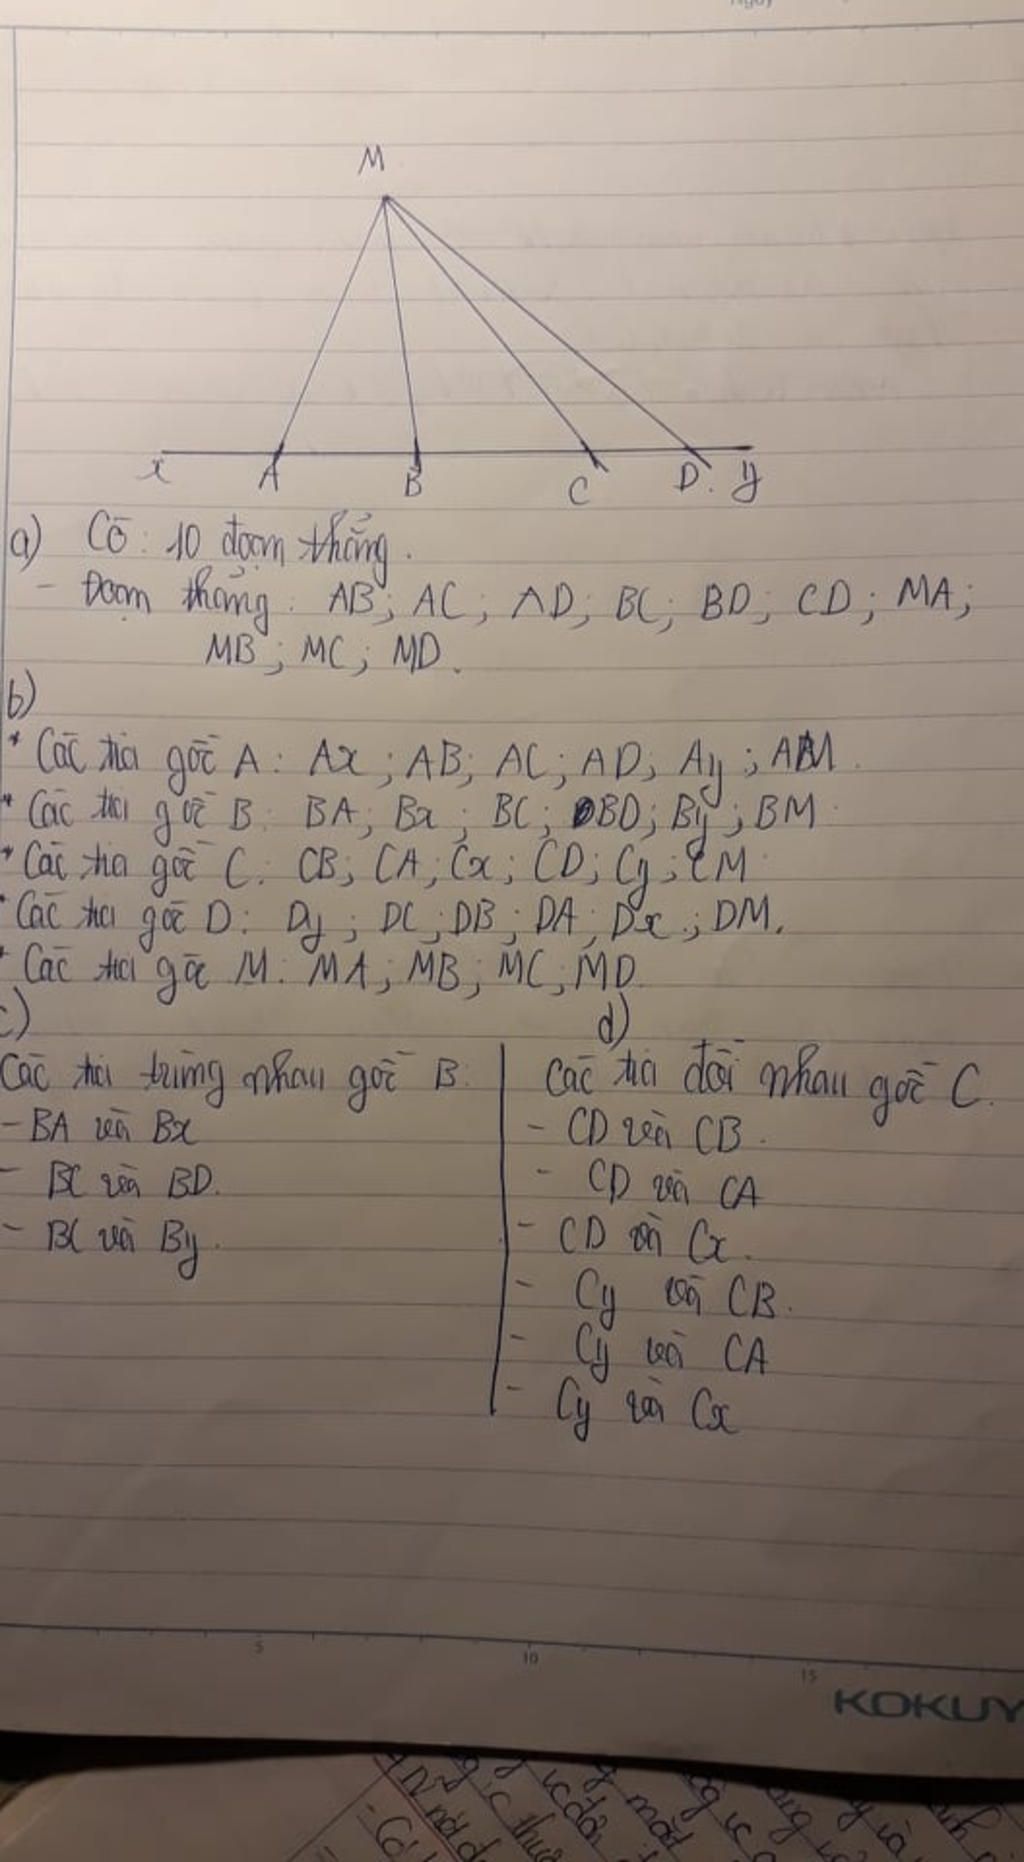 M
x A B C D. y
a) Có: 10 đoạn thẳng.
- Đoạn thẳng: AB; AC; AD; BC; BD; CD; MA;
MB; MC; MD.
b)
* Các tia gốc A: Ax; AB; AC; AD; Ay; AM.
* Các tia gốc B: BA; Bx; BC; BD; By; BM.
* Các tia gốc C: CB; CA; Cx; CD; Cy; CM
* Các tia gốc D: Dy; DC; DB; DA; Dx; DM.
* Các tia gốc M: MA; MB; MC; MD
c)
Các tia trùng nhau gốc B:
- BA và Bx
- BC và BD.
- BC và By.
d)
Các tia đối nhau gốc C.
- CD và CB.
- CD và CA
- CD và Cx.
- Cy và CB.
- Cy và CA
- Cy và Cx
5 10 15
KOKUY